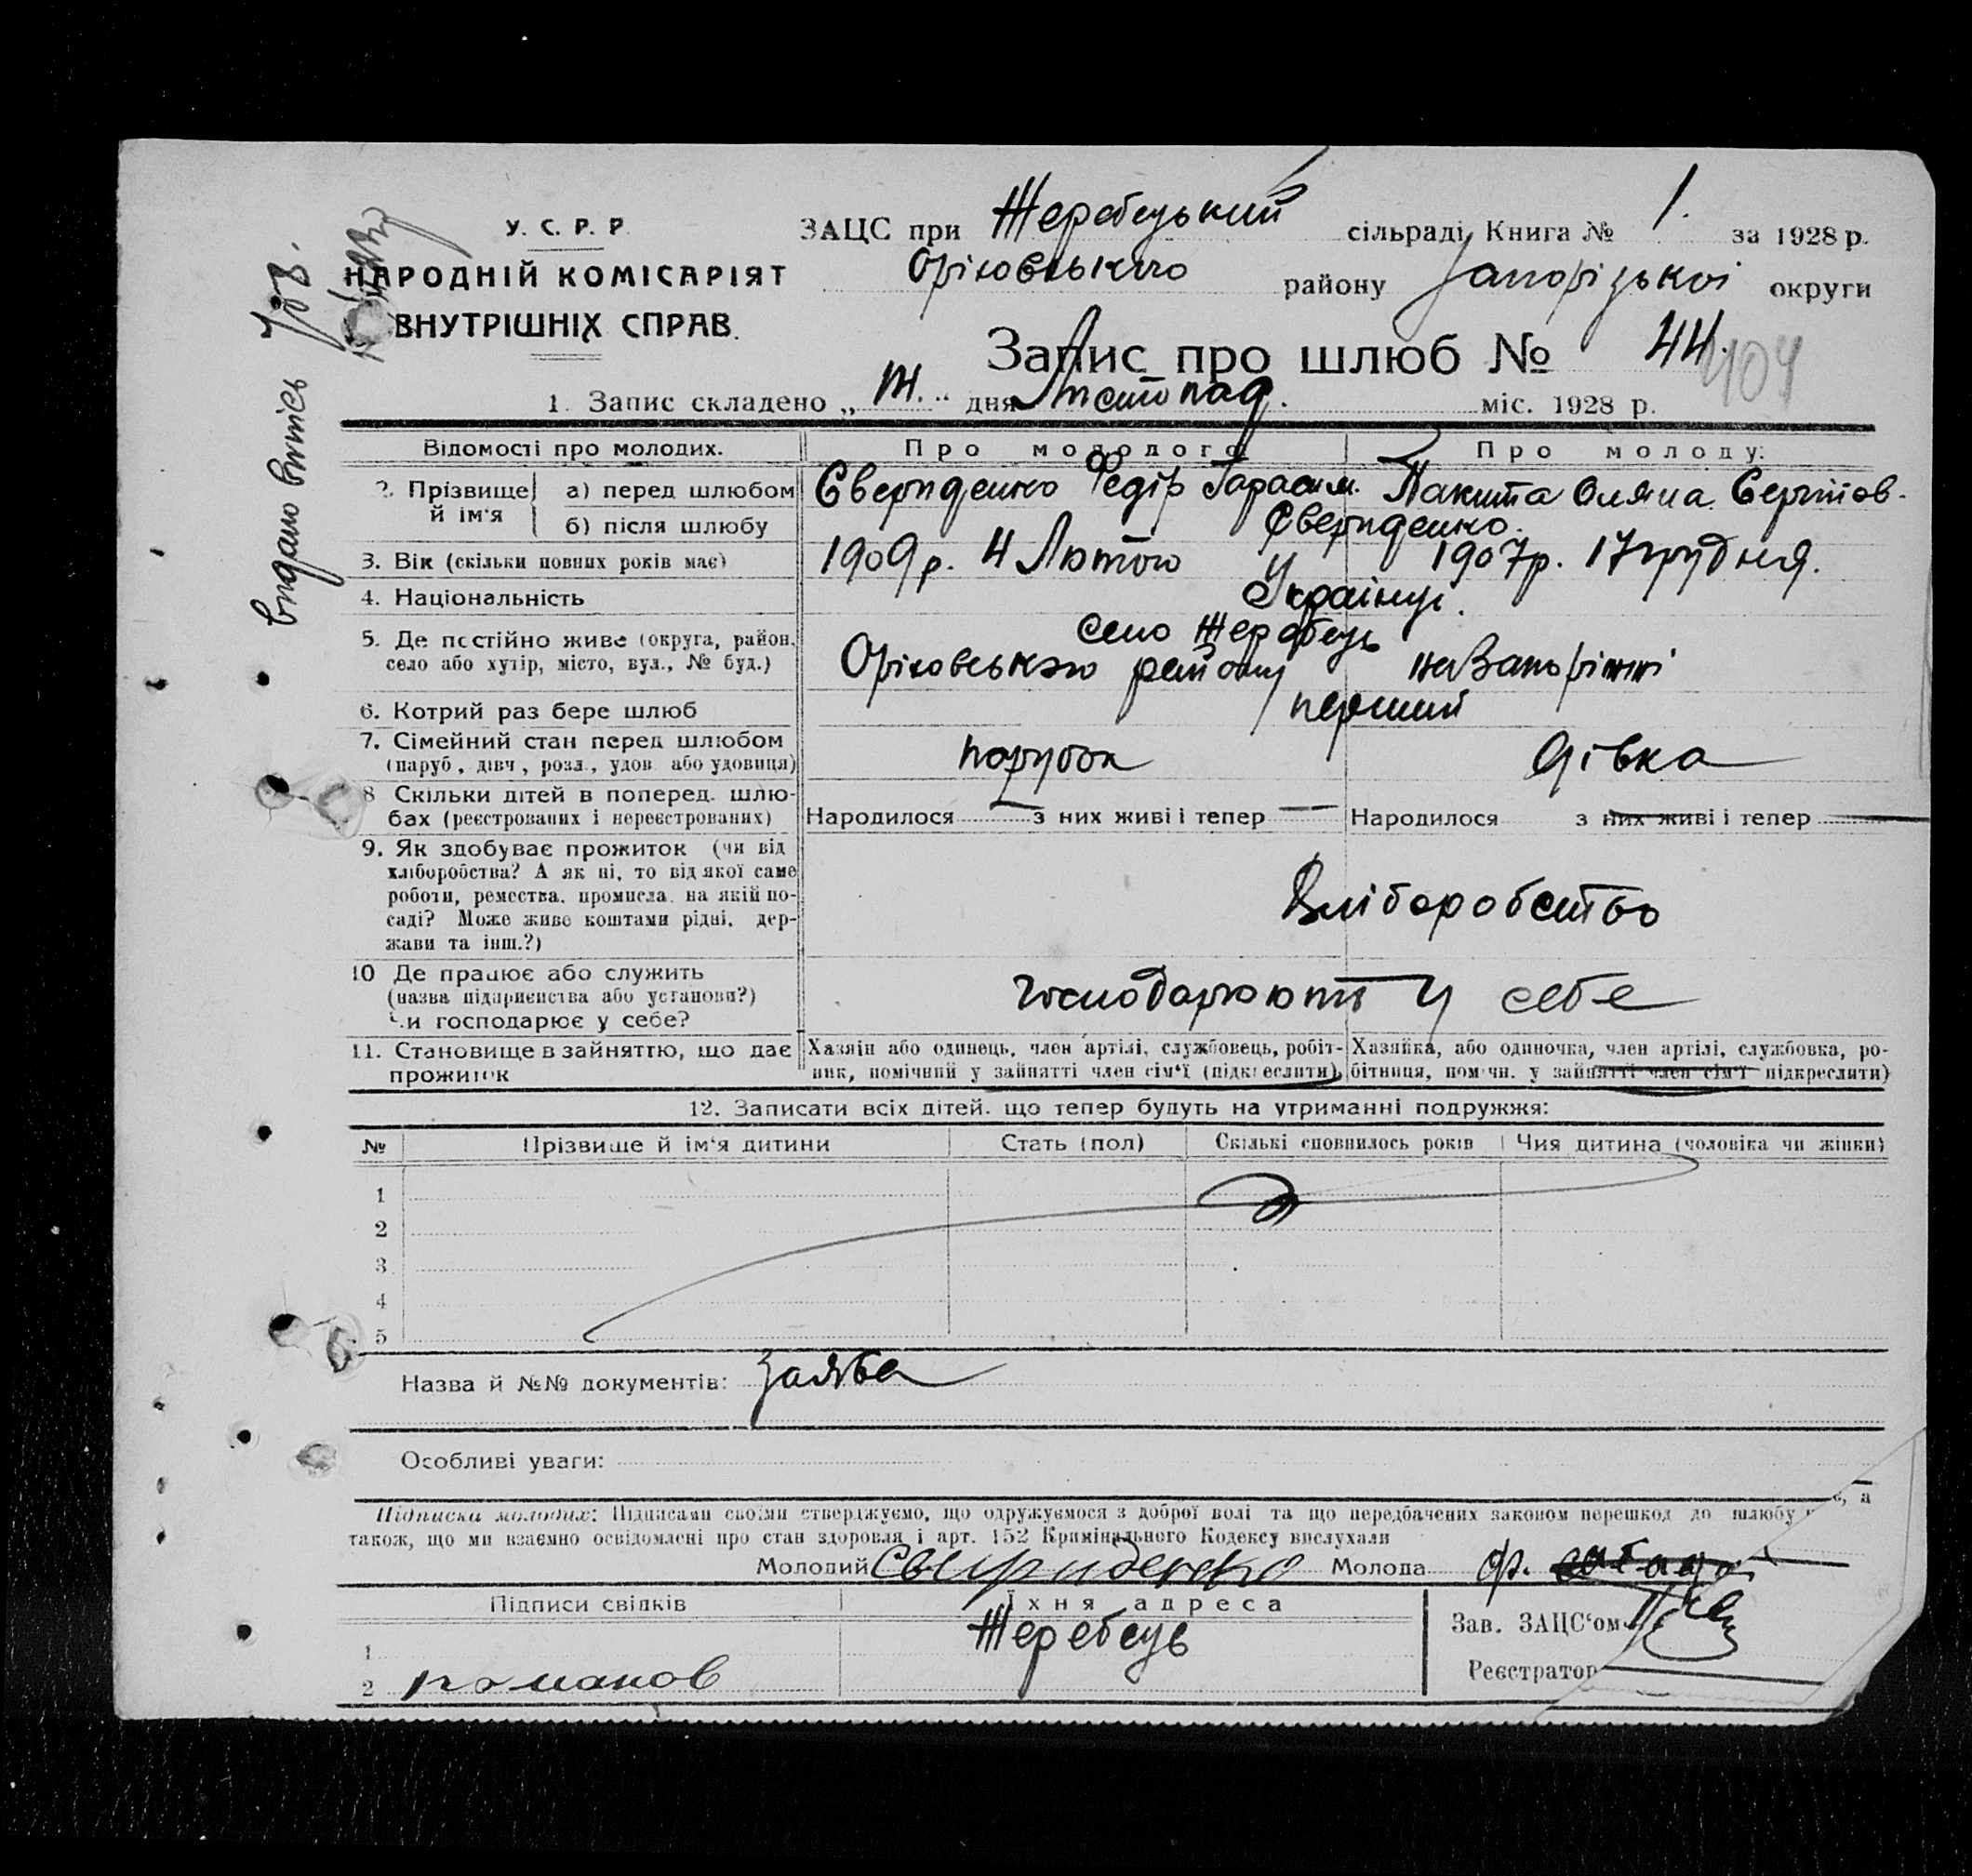 У. С. Р. Р.
НАРОДНІЙ КОМІСАРІЯТ
ВНУТРІШНІХ СПРАВ.
видано витісь
ЗАЦС при Жеребецький сільраді Книга № 1. за 1928 р.
Оріховського району Запорізької округи
Запис про шлюб № 44.
104
1. Запис складено „ " дня Листопад. міс. 1928 р.
Відомості про молодих. Про молодого Про молоду:
2. Прізвище й ім'я а) перед шлюбом Свериденко Федір Гарасим. Пакита Оляна Сергііов.
б) після шлюбу Свериденко.
3. Вік (скільки повних років має) 1909 р. 4 Лютого 1907 р. 17 грудня.
4. Національність Українці.
5. Де постійно живе (округа, район, село Жеребець
село або хутір, місто, вул., № буд.) Оріховського району на Запоріжжі
6. Котрий раз бере шлюб перший
7. Сімейний стан перед шлюбом парубок дівка
(паруб., дівч., розл., удов. або удовиця)
8 Скільки дітей в поперед. шлю-
бах (реєстрованих і нереєстрованих) Народилося — з них живі і тепер — Народилося з них живі і тепер —
9. Як здобуває прожиток (чи від
хліборобства? А як ні, то від якої саме
роботи, ремества, промисла, на якій по-
саді? Може живе коштами рідні, дер-
жави та інш.?)
Хліборобство
10 Де працює або служить
(назва підприємства або установи?)
Чи господарює у себе?
господарюють у себе
11. Становище в зайняттю, що дає
прожиток
Хазяїн або одинець, член артілі, службовець, робіт-
ник, помічний у зайнятті член сім'ї (підкреслити)
Хазяйка, або одиночка, член артілі, службовка, ро-
бітниця, помічн. у зайнятті член сім'ї підкреслити)
12. Записати всіх дітей, що тепер будуть на утриманні подружжя:
№ Прізвище й ім'я дитини Стать (пол) Скількі сповнилось років Чия дитина (чоловіка чи жінки)
1
2
3
4
5
Назва й №№ документів: Заява
Особливі уваги:
Підписи молодих: Підписами своїми стверджуємо, що одружуємося з доброї волі та що передбачених законом перешкод до шлюбу , а
також, що ми взаємно освідомлені про стан здоровля і арт. 152 Кримінального Кодексу вислухали
Молодий Свириденко Молода
Підписи свідків Їхня адреса
Зав. ЗАЦС'ом
1 Жеребець
Реєстратор
2 романов